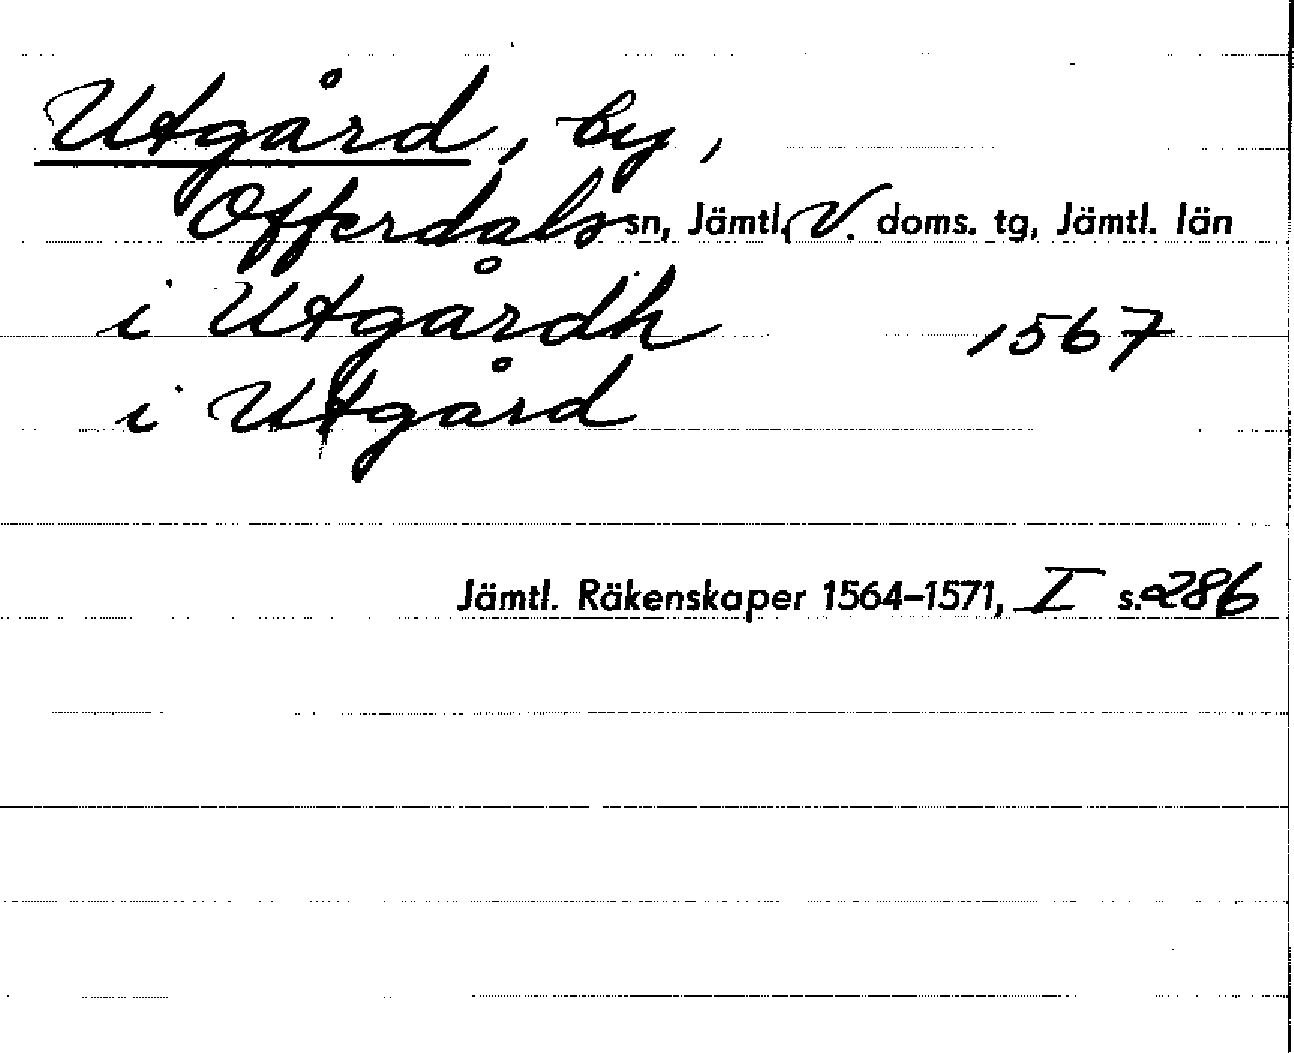 Utgård, by,
Offerdals sn, Jämtl. V. doms. tg, Jämtl. län
i Utgårdh 1567
i Utgård
Jämtl. Räkenskaper 1564–1571, I s. 286